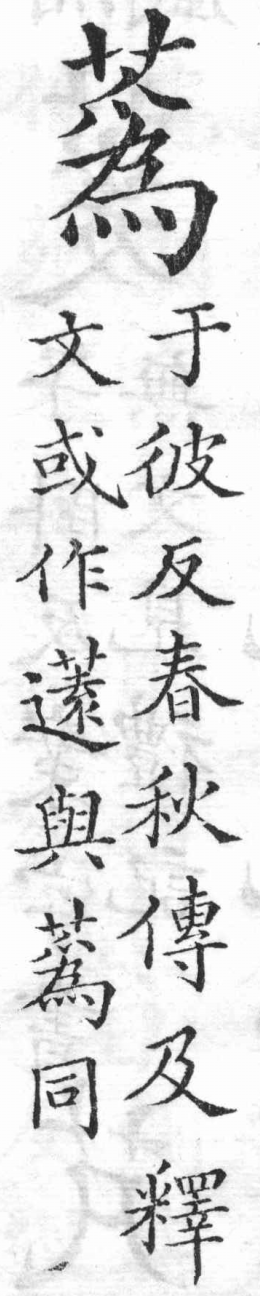 蒍
于彼反春秋傳及釋
文或作薳與蒍同